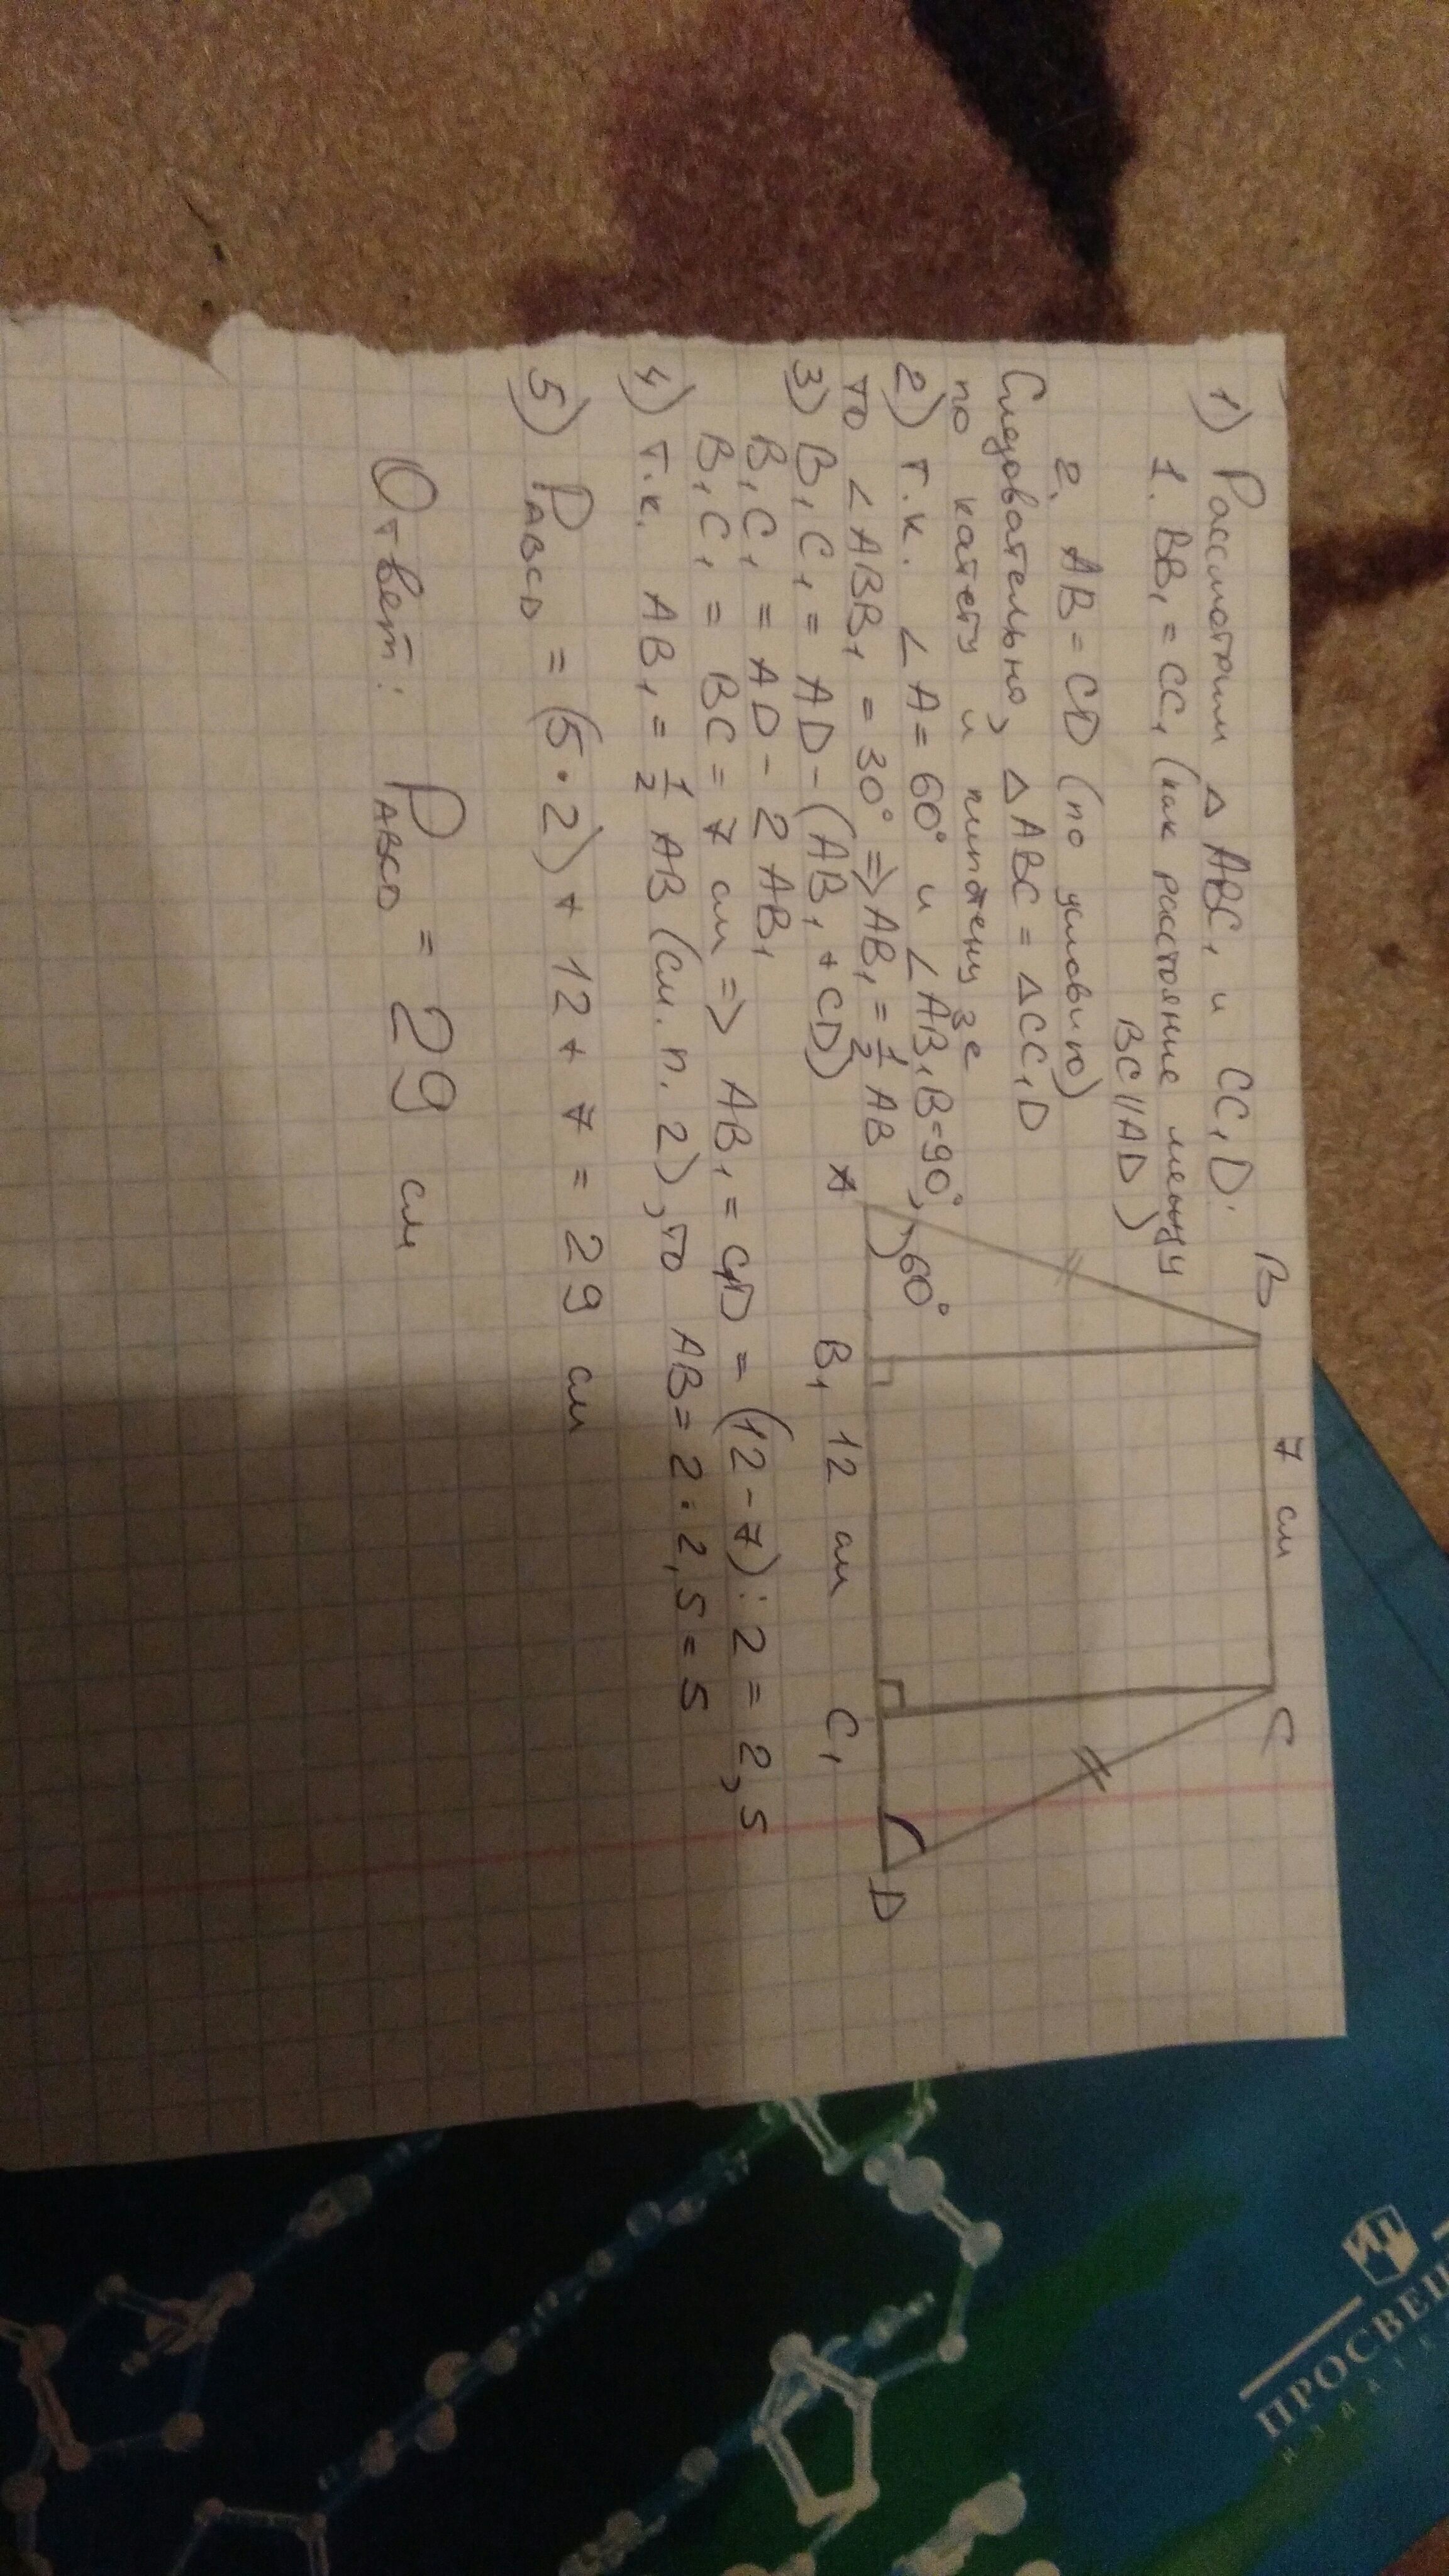 1) Рассмотрим △ ABC₁ и CC₁D:
1. BB₁ = CC₁ (как растояние между
BC || AD)
2. AB = CD (по условию)
Следовательно, △ABC = △CC₁D
по катету и гипотенузе
2) т.к. ∠A = 60° и ∠AB₁B = 90°,
то ∠ABB₁ = 30° => AB₁ = 1/2 AB
3) B₁C₁ = AD - (AB₁ + CD)
B₁C₁ = AD - 2AB₁
B₁C₁ = BC = 7 см => AB₁ = C₁D = (12 - 7) : 2 = 2,5
4) т.к. AB₁ = 1/2 AB (см. п. 2), то AB = 2 · 2,5 = 5
5) P ABCD = (5 · 2) + 12 + 7 = 29 см
Ответ: P ABCD = 29 см
B 7 см C
60°
A B₁ 12 см C₁ D
ПРОСВЕЩ